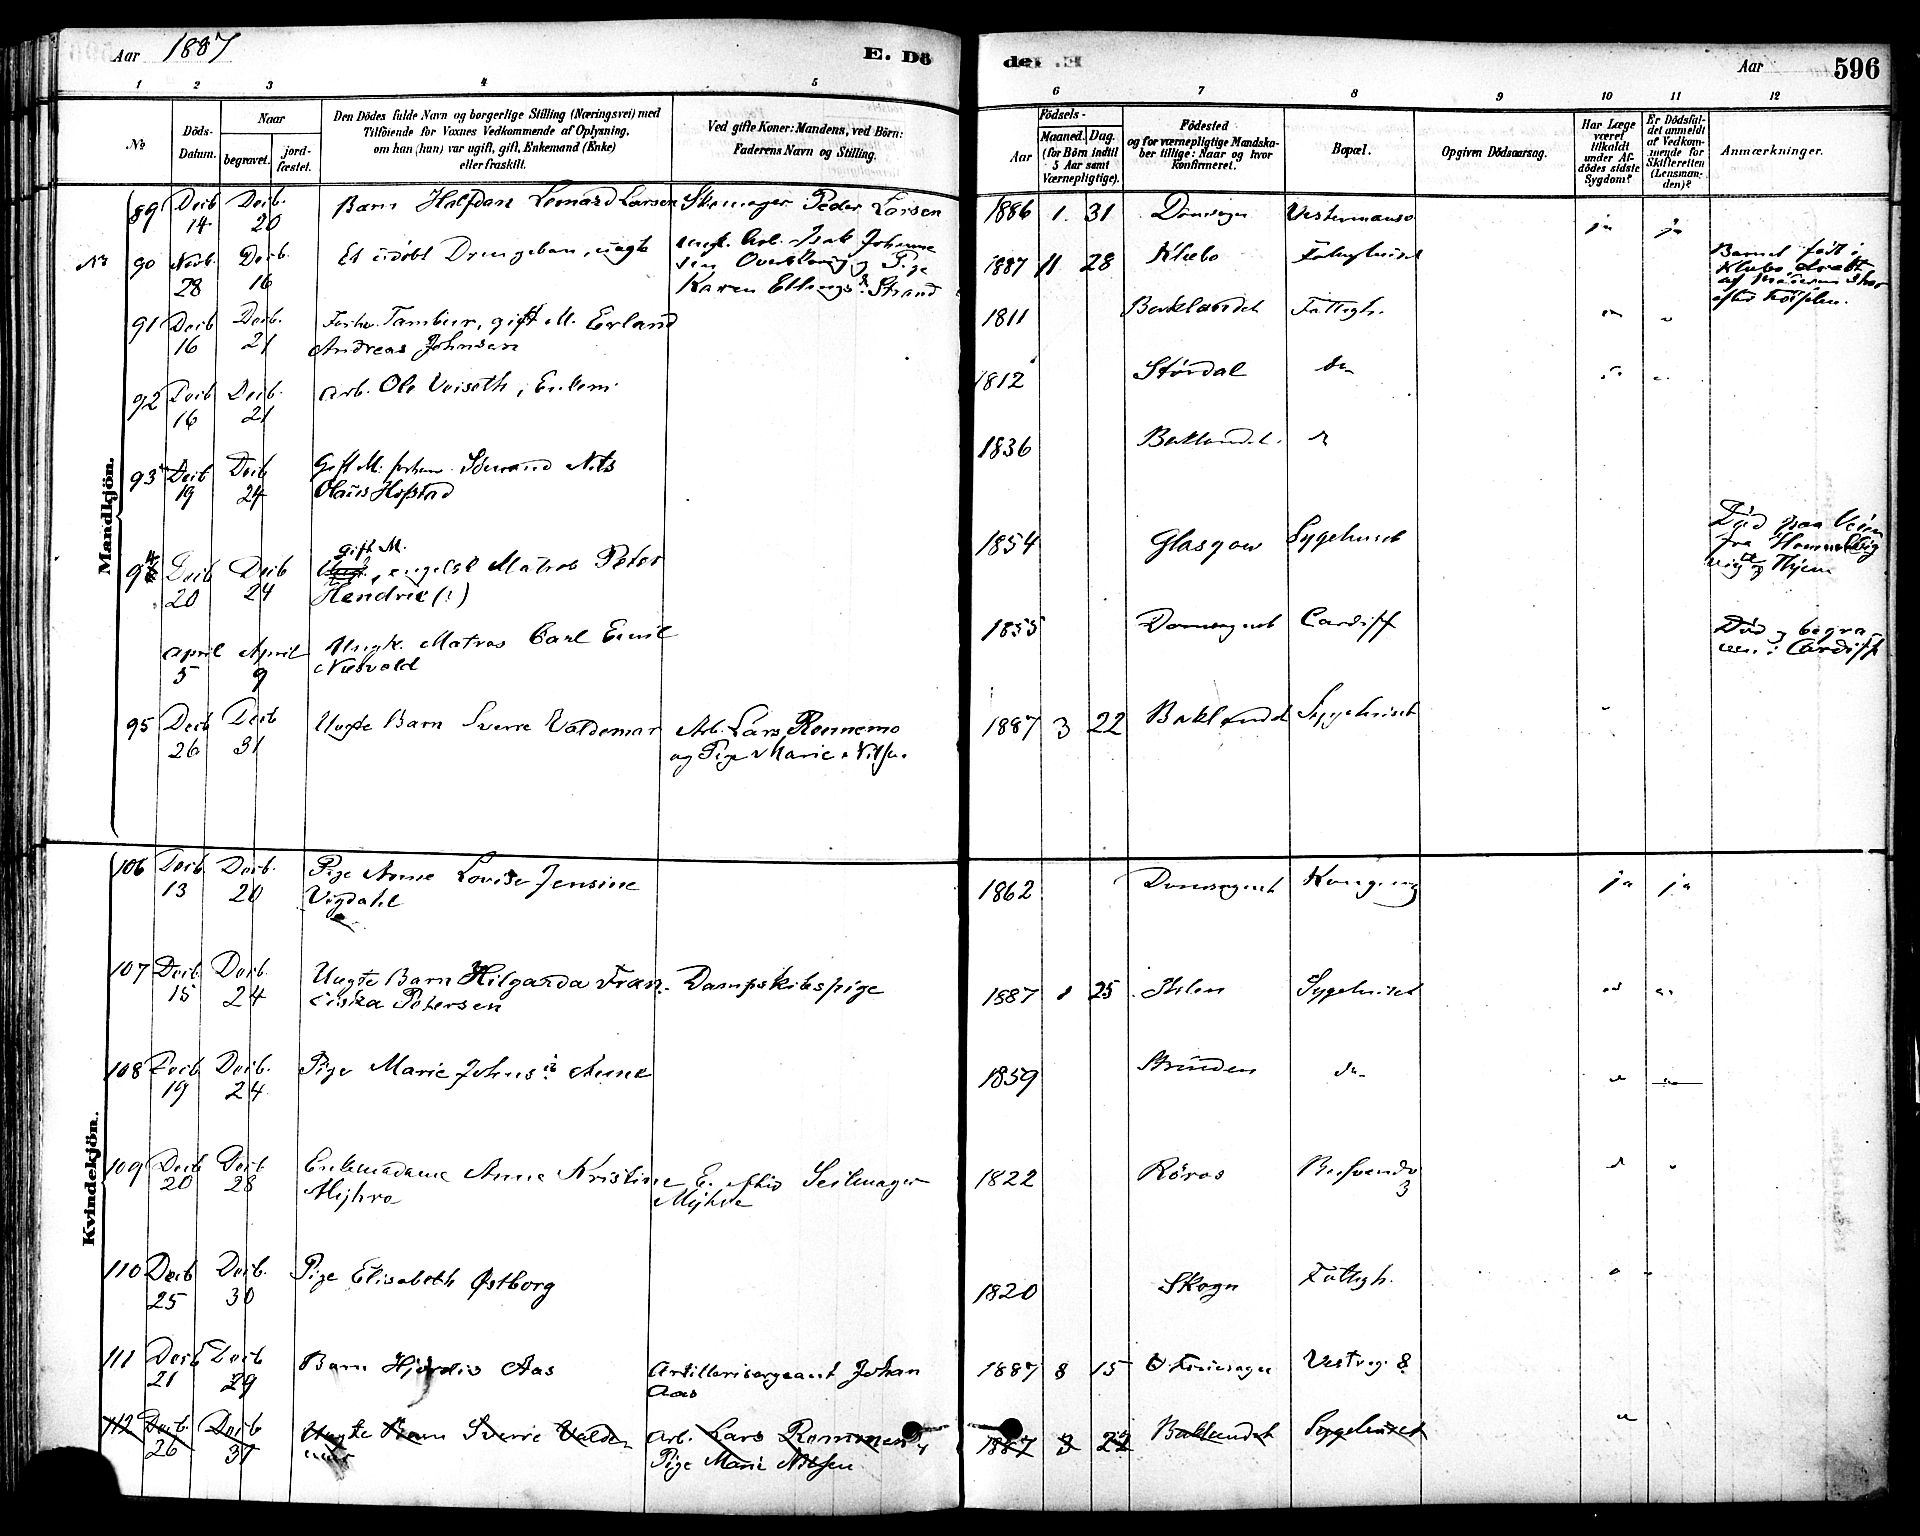 Aar 1887
E. Dö
de. E.
Aar
596
1 2 3 4 5
6 7 8 9 10 11 12
No
Döds-Datum.
Naar
begravet.
jord-fæstet.
Den Dödes fulde Navn og borgerlige Stilling (Næringsvei) med
Tilföiende for Voxnes Vedkommende af Oplysning,
om han (hun) var ugift, gift, Enkemand (Enke)
eller fraskilt.
Ved gifte Koner: Mandens, ved Börn:
Faderens Navn og Stilling.
Födsels-
Aar
Maaned. Dag.
(for Börn indtil
5 Aar samt
Værnepligtige).
Födested
og for værnepligtige Mandska-
ber tillige: Naar og hvor
Konfirmeret.
Bopæl.
Opgiven Dödsaarsag.
Har Læge
været
tilkaldt
under Af-
dödes sidste
Sygdom?
Er Dödsfal-
det anmeldt
af Vedkom-
mende for
Skifteretten
(Lensman-
den)?
Anmærkninger.
Mandkjön.
89 Decb 14 Decb. 20 Barn Halfdan Leonard Larsen Skomager Peder Larsen 1886 1. 31 Domsogn ja ja
No 90 28 Decb. 16 Et udøbt Drengebarn, uægte
ungk. Arb. Isak Johanne
sen og Pige
Karen Strand
1887 11 28 Klæbo
Barnet født i
Klæbo, dræbt
af Moderen
efter Fødselen.
91 Decb 16 Decb. 21 Forhv. Tambur, gift M. Erland
Andreas Johnsen
1811 Baklandet Fattigh.
92 Decb 16 Decb. 21 Arb. Ole Veiseth, Enkem. 1812 Størdal do
93 Decb 19 Decb 24 Gift M. forhen Nils
Olaus Hofstad
1836 Baklandet.
94 Decb 20 Decb 24 gift M.
, engelsk Matros Peter
Hendrie (?)
1854 Glasgow Sygehuset
Død paa Veien
fra
Hjem
April 5 April 9 Ungk. Matros Carl Emil
1855 Domsognet Cardiff
Død og begra-
ven i Cardiff
95 Decb 26 Decb 31 Uægte Barn Sverre Valdemar Arb. Lars Rennemo
og Pige Marie Nilsen
1887 3 22 Baklandet Sygehuset
Kvindekjön.
106 Decb. 13 Decb. 20 Pige Anne Lovise Jensine
Vigdahl
1862 Domsognet ja ja
107 Decb. 15 Decb. 24 Uægte Barn Hilganda Fran-
ciska Petersen
Dampskibspige 1887 25 Ihlen Sygehuset
108 Decb. 19 Decb. 24 Pige Marie Johns Aune 1859 Strinden do
109 Decb 20 Decb 28 Enkemadame Anne Kristine
Mÿhre
E. efter Seilmager
Mÿhre
1822 Røros 3
110 Decb 25 Decb. 30 Pige Elisabeth Østborg 1820 Skogn Fattigh.
111 Decb 21 Decb 29 Barn Hjørdis Aas Artillerisergeant Johan
Aas
1887 8 15 Vestreg. 8
112 Decb. 26 Decb 31 Uægte Barn Sverre Valde-
mar
Arb. Lars Rommen
Pige Marie Nilsen
1887 3 22 Baklandet Sygehuset